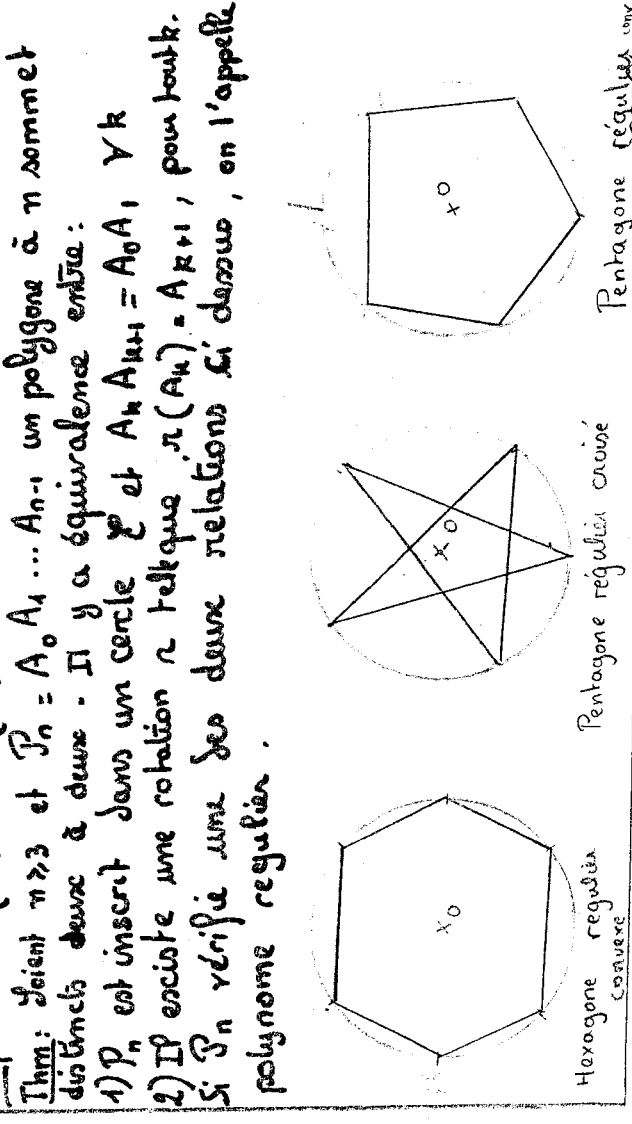 Thm: Soient n⩾3 et Pn = A0 A1 ... An-1 un polygone à n sommet
distincts deux à deux. Il y a équivalence entre:
1) Pn est inscrit dans un cercle C et Ak Ak+1 = A0 A1 ∀k
2) Il existe une rotation r telle que r(Ak) = Ak+1, pour tout k.
Si Pn vérifie une des deux relations ci dessus, on l'appelle
polynome regulier.
O
O
O
Hexagone regulier
convexe
Pentagone régulier croisé
Pentagone régulier conv